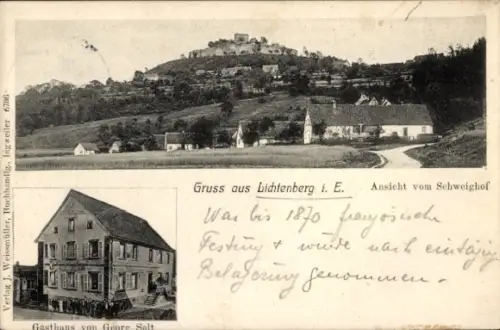 Gruss aus Lichtenberg i. E.
Ansicht vom Schweighof
Was bis 1870 französische
Festung & wurde nach eintägig
Belagerung genommen.
Gasthaus von Georg Salt
Verlag J. Weissmüller, Buchhandlg., Ingweiler 6786